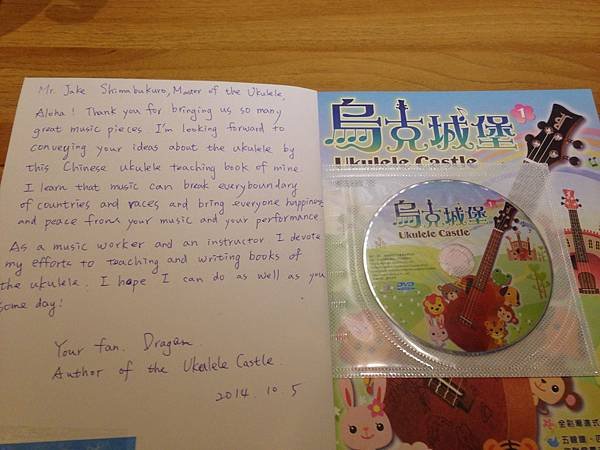 Mr. Jake Shimabukuro, Master of the Ukulele,
Aloha! Thank you for bringing us so many
great music pieces. I'm looking forward to
conveying your ideas about the ukulele by
this Chinese ukulele teaching book of mine
I learn that music can break everyboundary
of countries and races and bring everyone happiness
and peace from your music and your performance
As a music worker and an instructor I devote
my efforts to teaching and writing books of
the ukulele. I hope I can do as well as you
some day!
Your fan. Dragon
Author of the Ukelele Castle.
2014. 10. 5
烏克城堡 1
Ukulele Castle
烏克城堡
Ukulele Castle
DVD
全彩專業式
五線譜、四